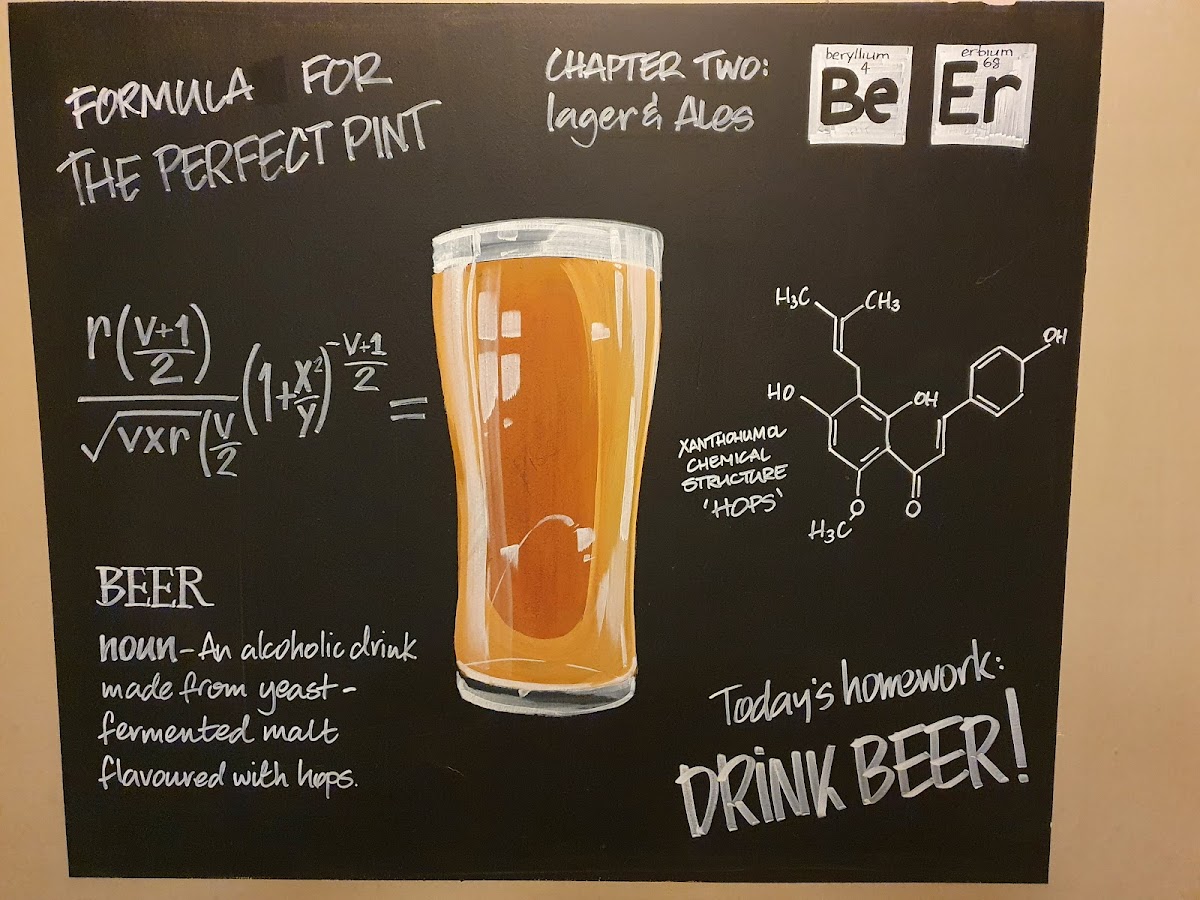 FORMULA FOR
THE PERFECT PINT
CHAPTER TWO:
lager & Ales
beryllium
4
Be
erbium
68
Er
r(v+1/2)
√vxr(v/2
(1+x²/y)^-v+1/2 =
H₃C
CH₃
OH
HO
OH
O
O
H₃C
XANTHOHUMOL
CHEMICAL
STRUCTURE
'HOPS'
BEER
noun - An alcoholic drink
made from yeast-
fermented malt
flavoured with hops.
Today's homework:
DRINK BEER!